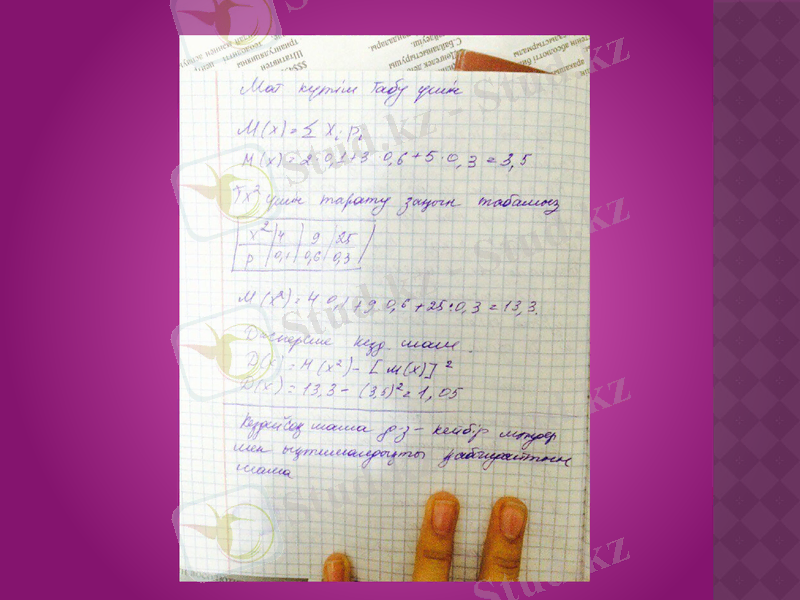 Мат күтім табу үшін
M(x) = Σ xᵢ pᵢ
M(x) = 2·0,1+3·0,6+5·0,3 = 3,5
x² үшін тарату заңын табамыз
x² | 4 | 9 | 25
p | 0,1 | 0,6 | 0,3
M(x²) = 4·0,1+9·0,6+25·0,3 = 13,3.
Дисперсия кезд. шама
D(x) = M(x²) – [M(x)]²
D(x) = 13,3 – (3,5)² = 1,05
Кездейсоқ шама д-з – кейбір мәндер
мен ықтималдықты қабылдайтын
шама
Stud.kz - Stud.kz